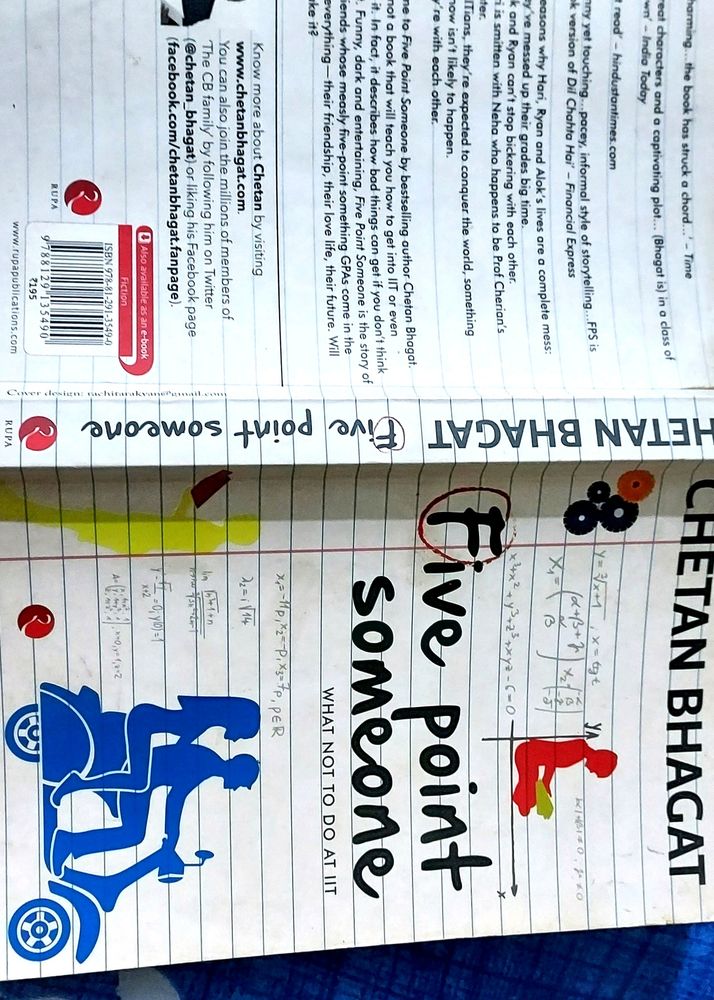 harming... the book has struck a chord...' – Time
reat characters and a captivating plot... (Bhagat is) in a class of
wn' – India Today
t read' – hindustantimes.com
nny yet touching...pacey, informal style of storytelling...FPS is
k version of Dil Chahta Hai' – Financial Express
easons why Hari, Ryan and Alok's lives are a complete mess:
y've messed up their grades big time.
k and Ryan can't stop bickering with each other.
ri is smitten with Neha who happens to be Prof Cherian's
ter.
ITians, they're expected to conquer the world, something
now isn't likely to happen.
y're with each other.
ne to Five Point Someone by bestselling author Chetan Bhagat.
not a book that will teach you how to get into IIT or even
it. In fact, it describes how bad things can get if you don't think
. Funny, dark and entertaining, Five Point Someone is the story of
iends whose measly five-point something GPAs come in the
everything—their friendship, their love life, their future. Will
ake it?
Know more about Chetan by visiting
www.chetanbhagat.com.
You can also join the millions of members of
The CB family by following him on Twitter
(@chetan_bhagat) or liking his Facebook page
(facebook.com/chetanbhagat.fanpage).
RUPA
Also available as an e-book
Fiction
ISBN 978-81-291-3549-0
9788129135490
₹195
www.rupapublications.com
Cover design: rachitarakyan@gmail.com
HETAN BHAGAT
Five point someone
RUPA
CHETAN BHAGAT
y=³√x+1, x=tgt
x³+x²+y³+z³+xyz-6=0
x
Five point
someone
WHAT NOT TO DO AT IIT
x₁=-11p, x₂=-p, x₃=7p, p∈R
λ₂=i√14